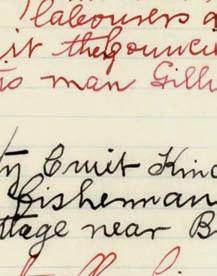 labourers
it the councu
is man Gill
ty Cruit Kinc
fisherman
ttage near B